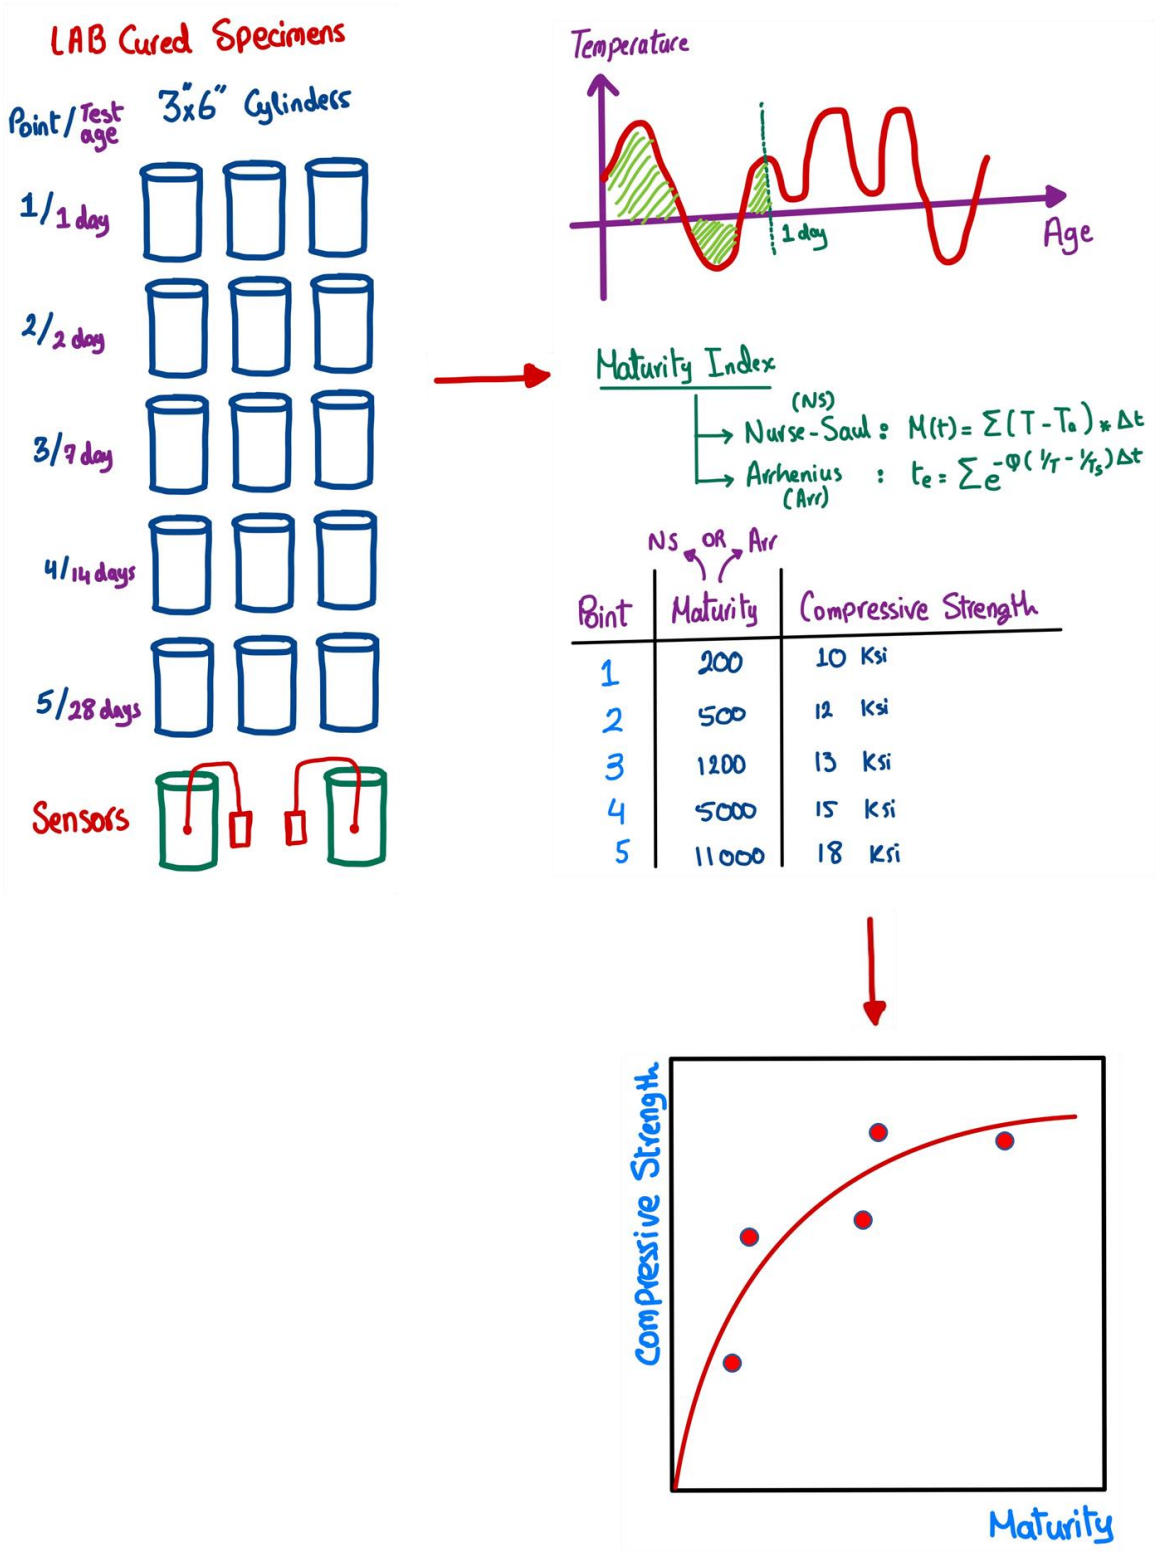 LAB Cured Specimens
Point/Test age
3"x6" Cylinders
1/1 day
2/2 day
3/7 day
4/14 days
5/28 days
Sensors
Temperature
1 day
Age
Maturity Index
(NS)
Nurse-Saul : M(t) = Σ(T-To) * Δt
Arrhenius : te = Σe^-Q(1/T - 1/Ts)Δt
(Arr)
NS OR Arr
Point Maturity Compressive Strength
1 200 10 Ksi
2 500 12 Ksi
3 1200 13 Ksi
4 5000 15 Ksi
5 11000 18 Ksi
Compressive Strength
Maturity